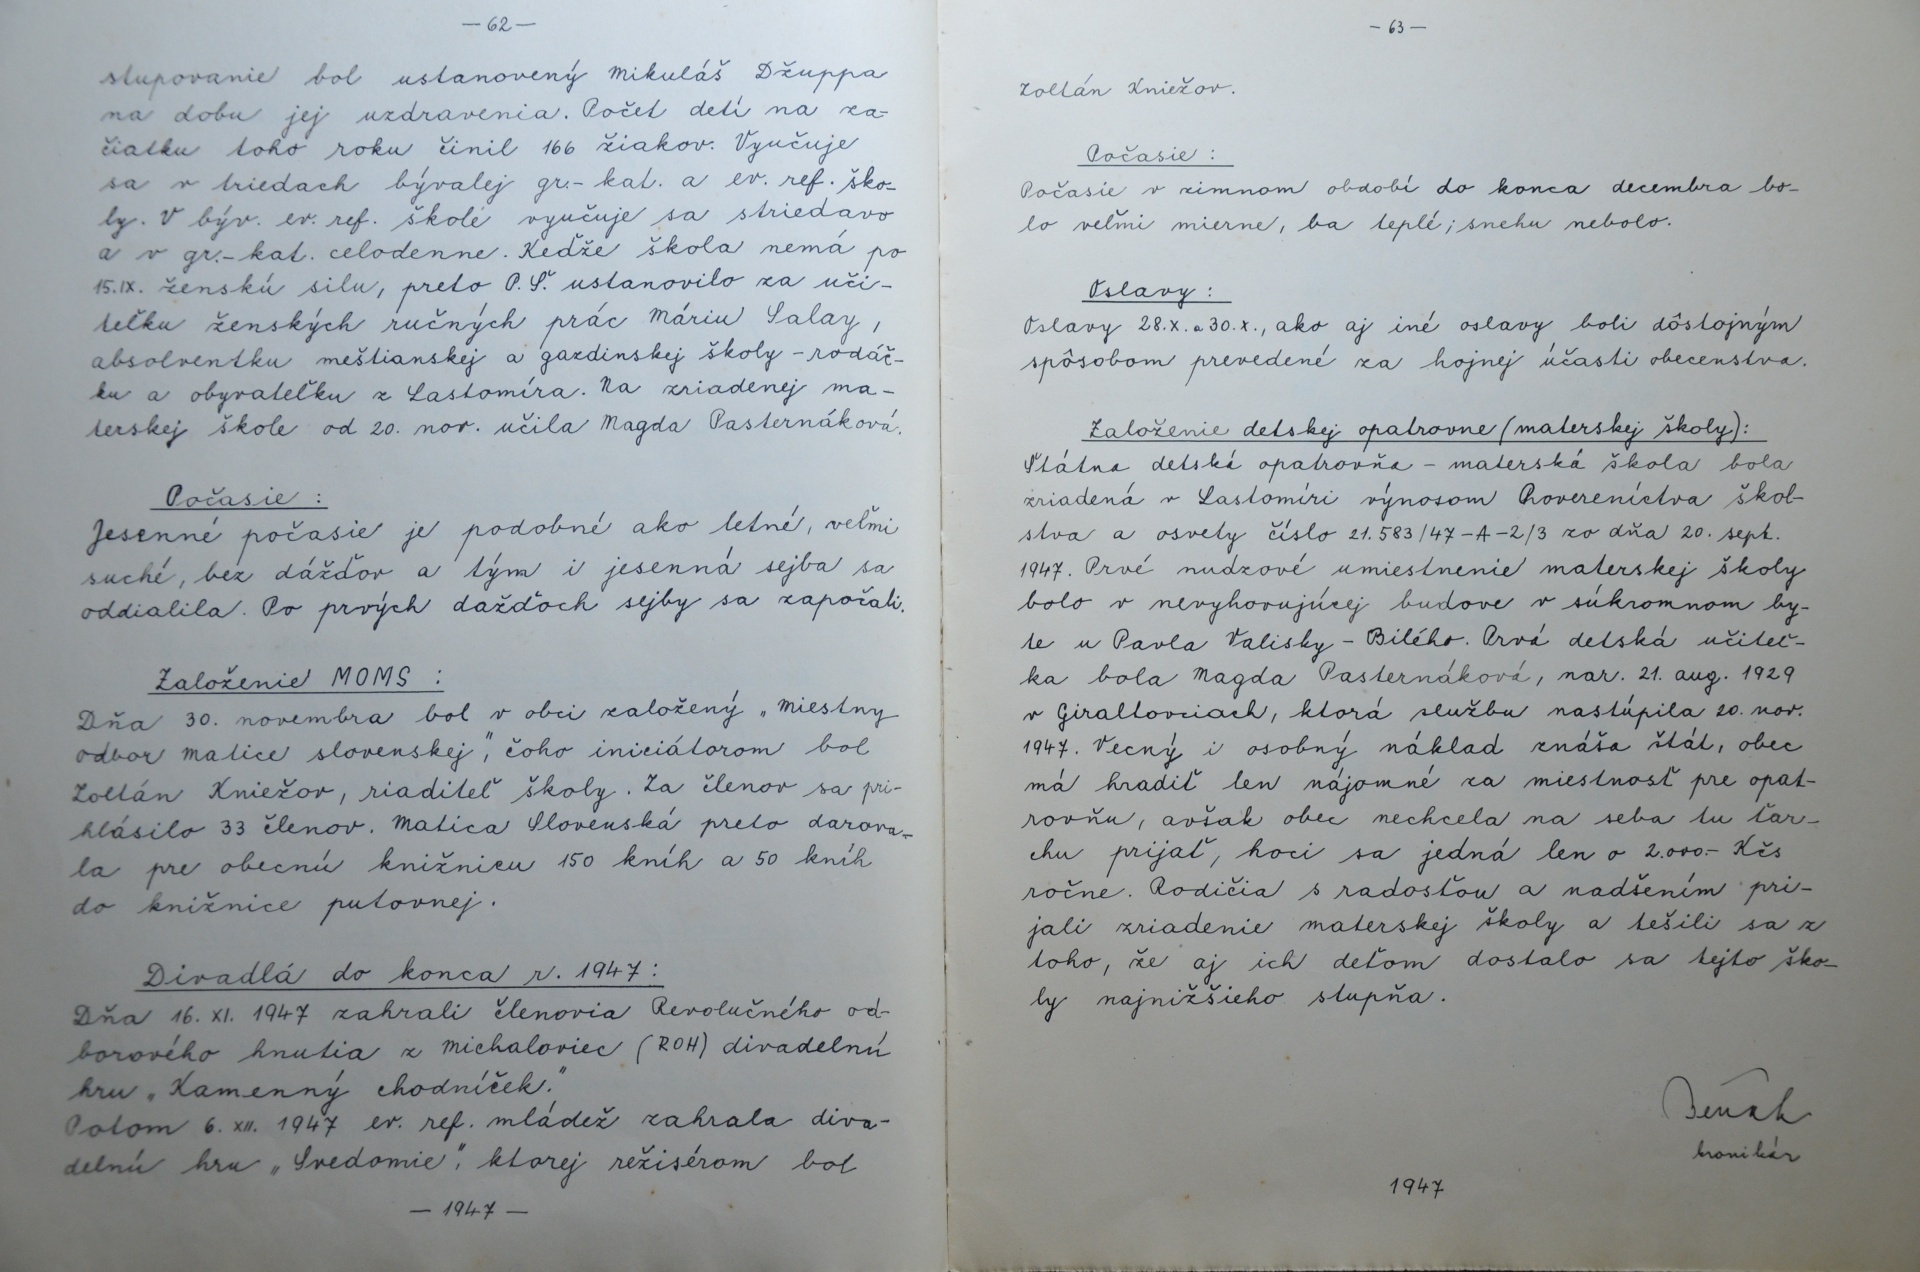 — 62 —
stupovanie bol ustanovený Mikuláš Džuppa
na dobu jej uzdravenia. Počet detí na za-
čiatku toho roku činil 166 žiakov. Vyučuje
sa v triedach bývalej gr.-kat. a ev. ref. ško-
ly. V býv. ev. ref. škole vyučuje sa striedavo
a v gr.-kat. celodenne. Keďže škola nemá po
15.IX. ženskú silu, preto P.Š. ustanovilo za uči-
teľku ženských ručných prác Máriu Salay,
absolventku meštianskej a gazdinskej školy - rodáč-
ku a obyvateľku z Lastomíra. Na zriadenej ma-
terskej škole od 20. nov. učila Magda Pasternáková.
Počasie :
Jesenné počasie je podobné ako letné, veľmi
suché, bez dážďov a tým i jesenná sejba sa
oddialila. Po prvých dažďoch sejby sa započali.
Založenie MOMS :
Dňa 30. novembra bol v obci založený „Miestny
odbor Matice slovenskej", čoho iniciátorom bol
Zoltán Kniežov, riaditeľ školy. Za členov sa pri-
hlásilo 33 členov. Matica Slovenská preto darova-
la pre obecnú knižnicu 150 kníh a 50 kníh
do knižnice putovnej.
Divadlá do konca r. 1947 :
Dňa 16. XI. 1947 zahrali členovia Revolučného od-
borového hnutia z Michaloviec (ROH) divadelnú
hru „Kamenný chodníček."
Potom 6. XII. 1947 ev. ref. mládež zahrala diva-
delnú hru „Svedomie", ktorej režisérom bol
— 1947 —
— 63 —
Zoltán Kniežov.
Počasie :
Počasie v zimnom období do konca decembra bo-
lo veľmi mierne, ba teplé; snehu nebolo.
Oslavy :
Oslavy 28.X. a 30.X., ako aj iné oslavy boli dôstojným
spôsobom prevedené za hojnej účasti obecenstva.
Založenie detskej opatrovne (materskej školy):
Štátna detská opatrovňa - materská škola bola
zriadená v Lastomíri výnosom Povereníctva škol-
stva a osvety číslo 21.583/47-A-2/3 zo dňa 20. sept.
1947. Prvé nudzové umiestnenie materskej školy
bolo v nevyhovujúcej budove v súkromnom by-
te u Pavla Valisky - Bilého. Prvá detská učiteľ-
ka bola Magda Pasternáková, nar. 21. aug. 1929
v Giraltovciach, ktorá službu nastúpila 20. nov.
1947. Vecný i osobný náklad znáša štát, obec
má hradiť len nájomné za miestnosť pre opat-
rovňu, avšak obec nechcela na seba tu ťar-
chu prijať, hoci sa jedná len o 2.000.- Kčs
ročne. Rodičia s radosťou a nadšením pri-
jali zriadenie materskej školy a tešili sa z
toho, že aj ich deťom dostalo sa tejto ško-
ly najnižšieho stupňa.
kronikár
1947